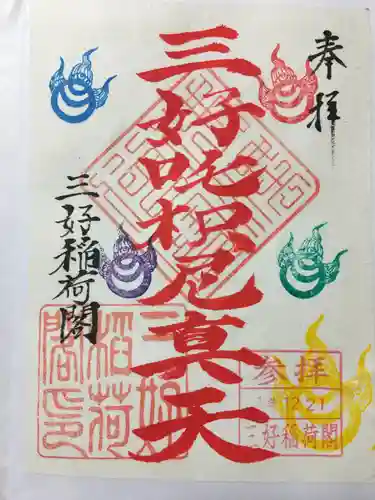 奉拝
三好吒枳尼真天
三好稲荷閣
参拝
12.21
三好稲荷閣
三好
稲荷
閣印